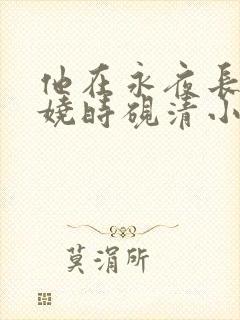 他在永夜長
嬈時硯清小
莫涓所